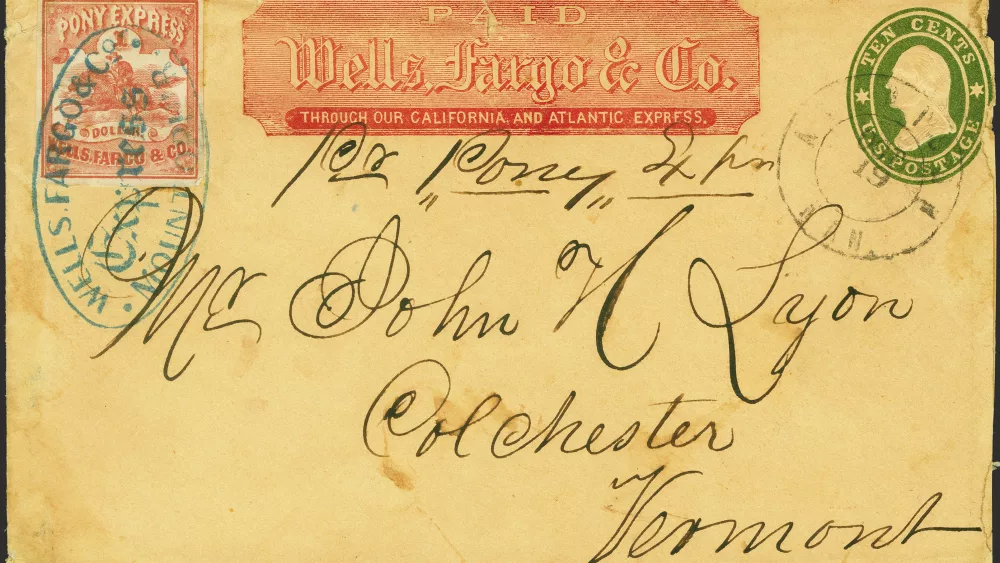 PAID
Wells, Fargo & Co.
THROUGH OUR CALIFORNIA AND ATLANTIC EXPRESS.
PONY EXPRESS
1
DOLLAR
WELLS, FARGO & CO.
WELLS, FARGO & Co.
Express
TEN CENTS
U.S. POSTAGE
19
Pr "Poney" Exprs
Mr John H Lyon
Colchester
Vermont